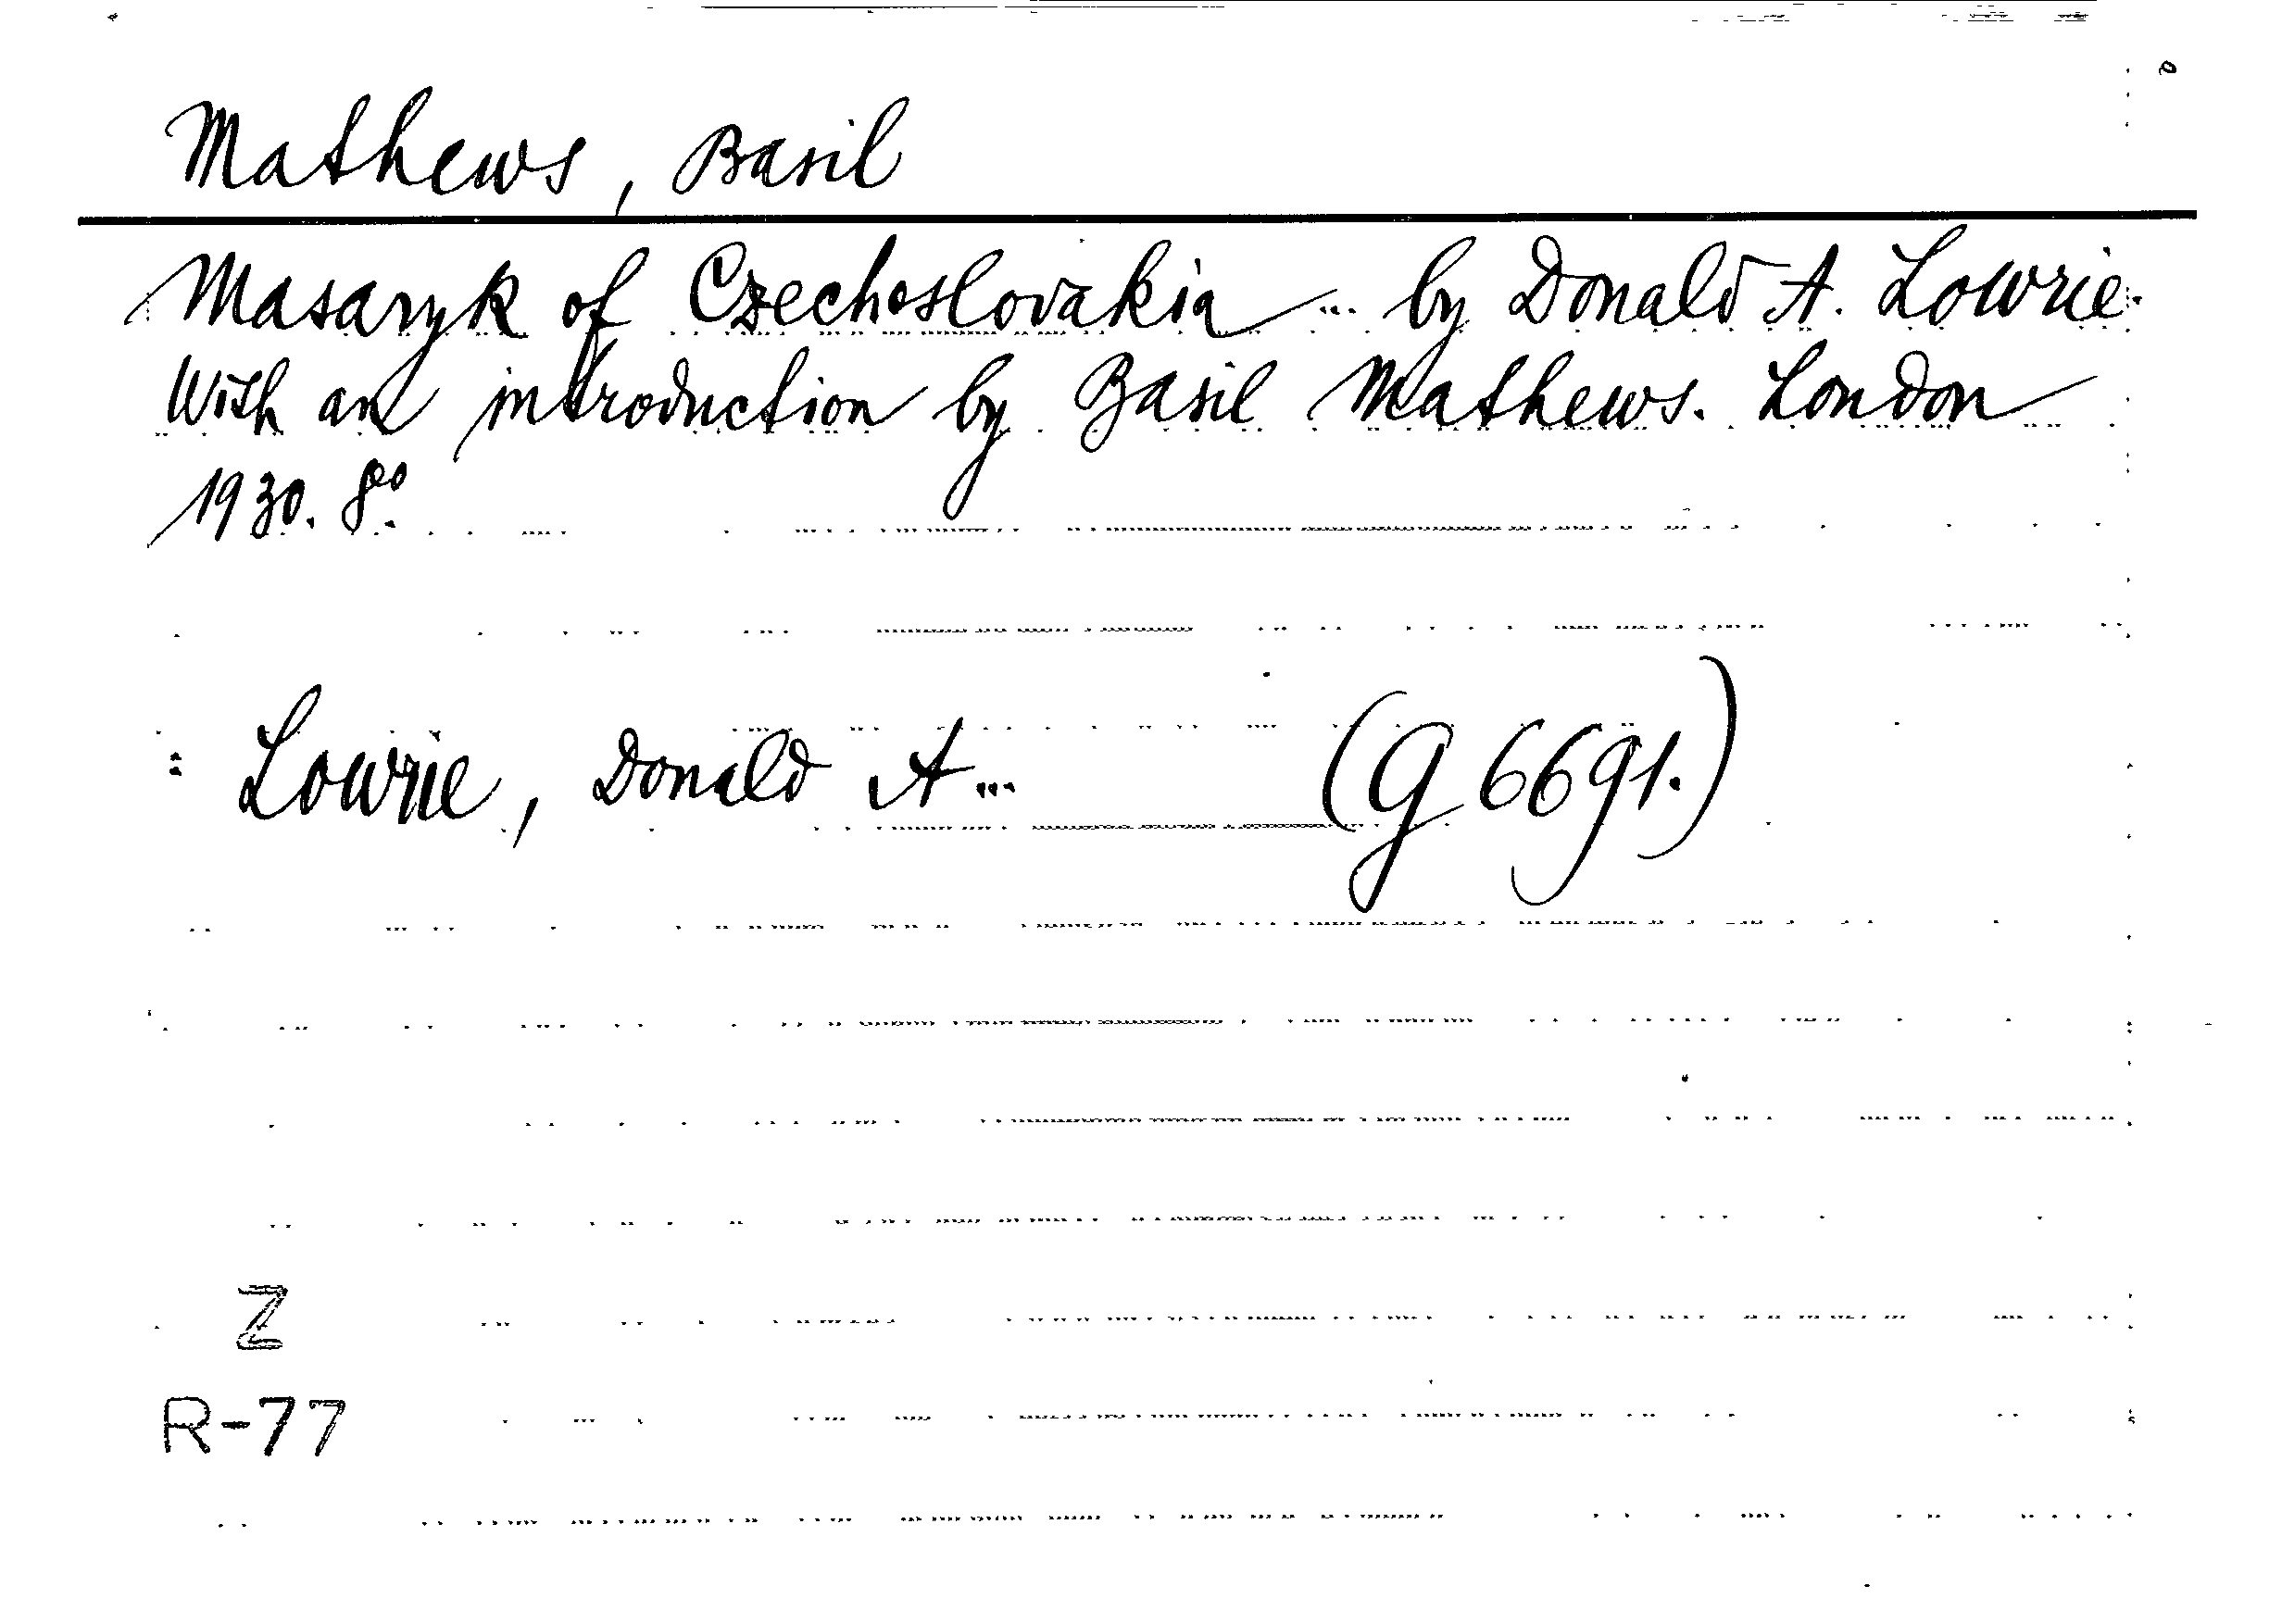 Mathews, Basil
Masaryk of Czechoslovakia... by Donald A. Lowrie.
With an introduction by Basil Mathews. London
1930. 8°.
: Lowrie, Donald A... (G 6691.)
Z
R-77